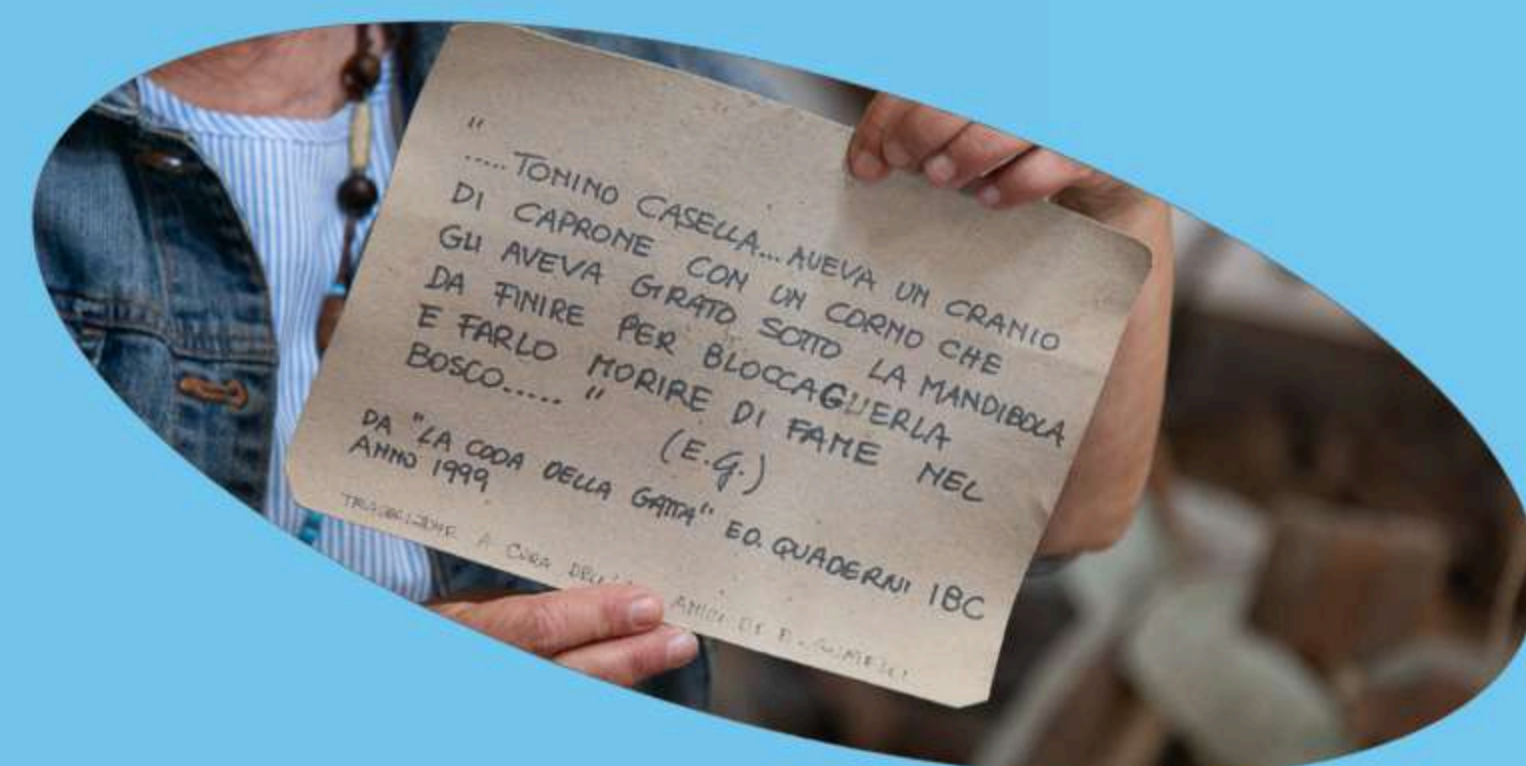 "
.....TONINO CASELLA... AVEVA UN CRANIO
DI CAPRONE CON UN CORNO CHE
GLI AVEVA GIRATO SOTTO LA MANDIBOLA
DA FINIRE PER BLOCCAGLIERLA
E FARLO MORIRE DI FAME NEL
BOSCO..... "
(E.G.)
DA "LA CODA DELLA GATTA" ED. QUADERNI IBC
ANNO 1999
TRASCRIZIONE A CURA AMICI DI E.